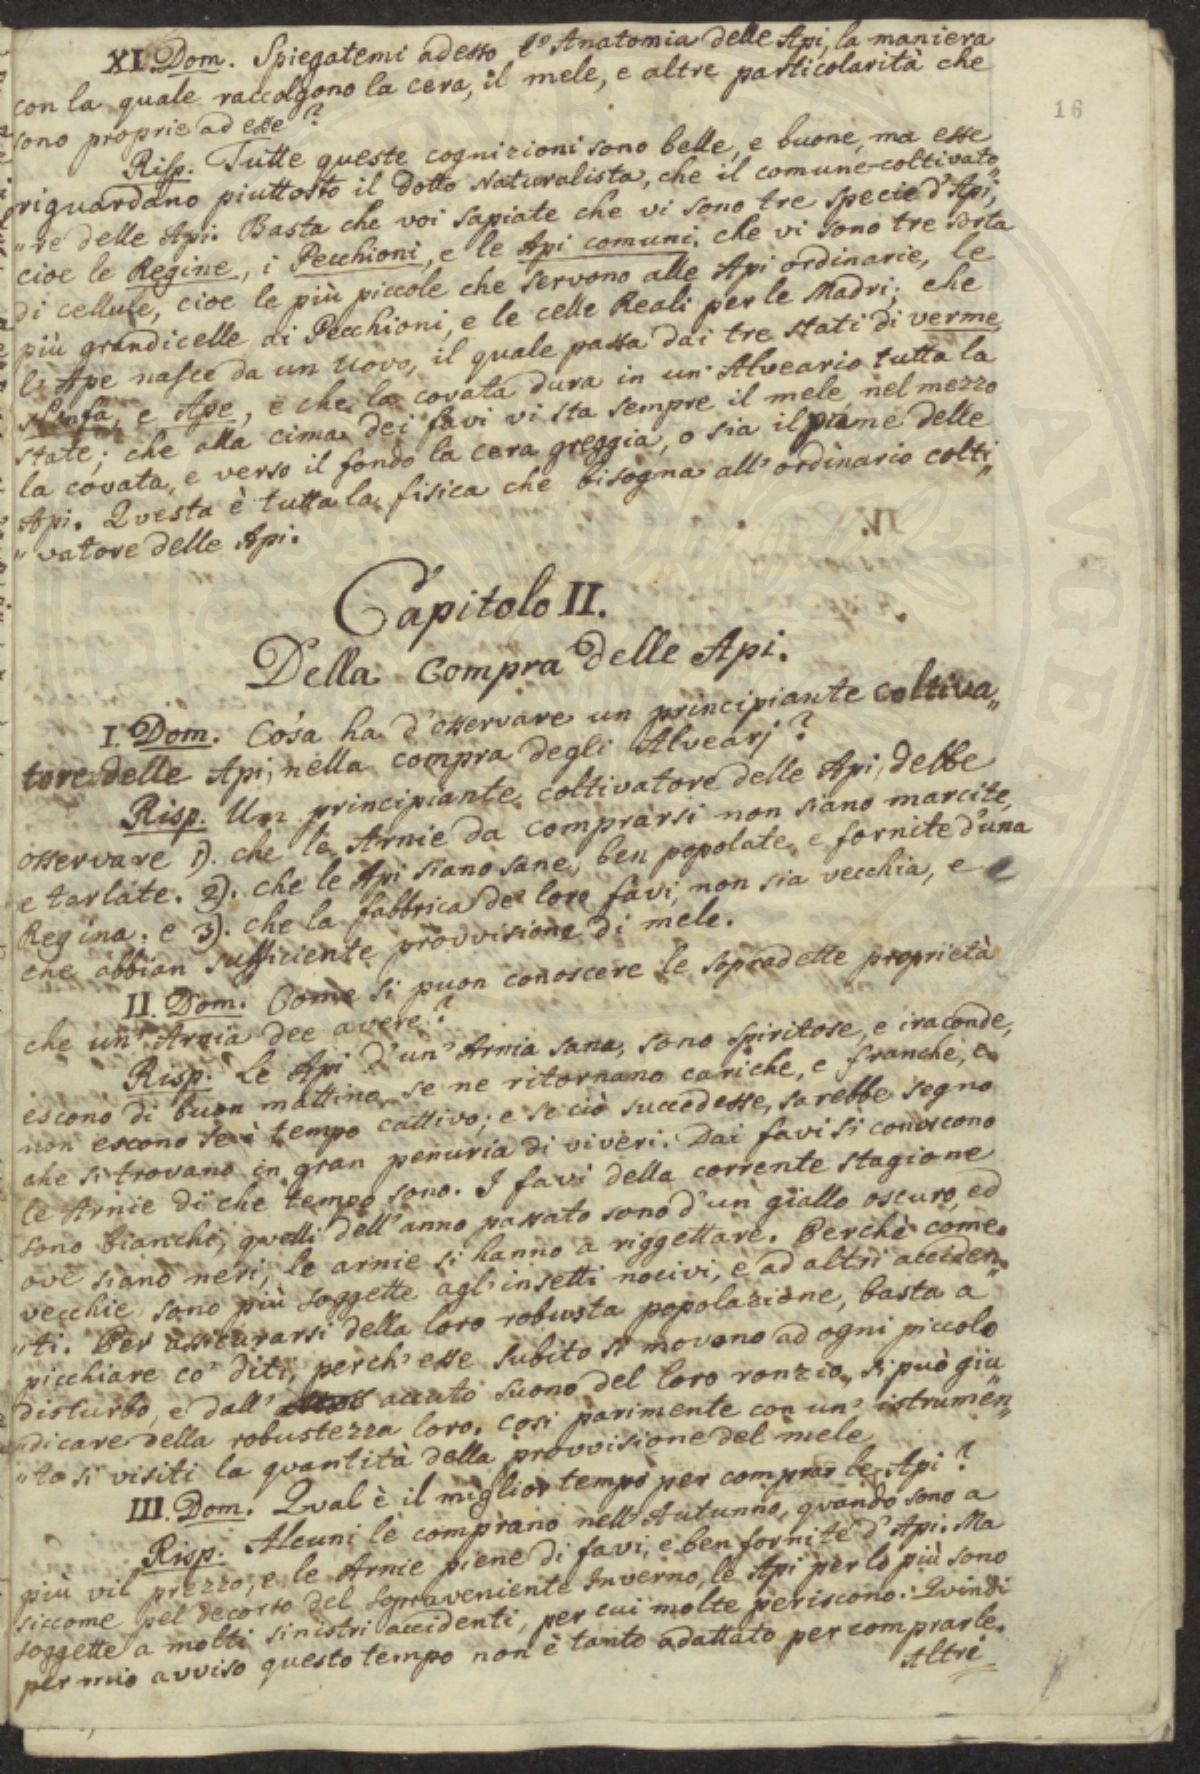 16
XI. Dom. Spiegatemi adesso l'Anatomia delle Api, la maniera
con la quale raccolgono la cera, il mele, e altre particolarità che
sono proprie ad esse?
Risp. Tutte queste cognizioni sono belle, e buone, ma esse
riguardano piuttosto il dotto Naturalista, che il comune coltivato„
„re delle Api. Basta che voi sapiate che vi sono tre specie d'Api,
cioe le Regine, i Pecchioni, e le Api comuni, che vi sono tre sorta
di cellule, cioe le più piccole che servono alle Api ordinarie, le
più grandicelle ai Pecchioni, e le celle Reali per le Madri; che
l'Ape nasce da un Uovo, il quale passa dai tre stati di verme,
Ninfa, e Ape, e che la covata dura in un Alveario tutta la
state; che alla cima dei favi vi sta sempre il mele, nel mezzo
la covata, e verso il fondo la cera greggia, o sia il pane delle
Api. Questa è tutta la fisica che bisogna all'ordinario colti„
„vatore delle Api.
IV.
Capitolo II.
Della Compra delle Api.
I. Dom. Cosa ha d'osservare un principiante coltiva„
tore delle Api, nella compra degli Alvearj?
Risp. Un principiante coltivatore delle Api, debbe
osservare 1). che le Arnie da comprarsi non siano marcite,
e tarlate. 2). che le Api siano sane, ben popolate, e fornite d'una
Regina. e 3). che la fabbrica de' loro favi, non sia vecchia, e
che abbian sufficiente provvisione di mele.
II. Dom. Come si puon conoscere le sopradette proprietà
che un' Arnia dee avere?
Risp. Le Api d'un' Arnia sana, sono spiritose, e iraconde,
escono di buon mattino, se ne ritornano cariche, e franche, e
non escono se è tempo cattivo; e se ciò succedesse, sarebbe segno
che si trovano in gran penuria di viveri. Dai favi si conoscono
le Arnie di che tempo sono. I favi della corrente stagione
sono bianchi, quelli dell'anno passato sono d'un giallo oscuro, ed
ove siano neri, le arnie si hanno a riggettare. Perchè come
vecchie sono più soggette agl'insetti nocivi, e ad altri acciden„
„ti. Per assicurarsi della loro robusta popolazione, basta a
picchiare co' diti, perch'esse subito si movono ad ogni piccolo
disturbo, e dall' accuto suono del loro ronzio, si può giu„
„dicare della robustezza loro. Cosi parimente con un' istrumen„
„to si visiti la quantità della provvisione del mele
III. Dom. Qual è il miglior tempo per comprar le Api?
Risp. Alcuni le comprano nell'Autunno, quando sono a
più vil prezzo, e le Arnie piene di favi, e ben fornite d'Api. Ma
siccome pel decorso del sopraveniente Inverno, le Api per lo più sono
soggette a molti sinistri accidenti, per cui molte periscono. Quindi
per mio avviso questo tempo non è tanto adattato per comprarle.
Altri